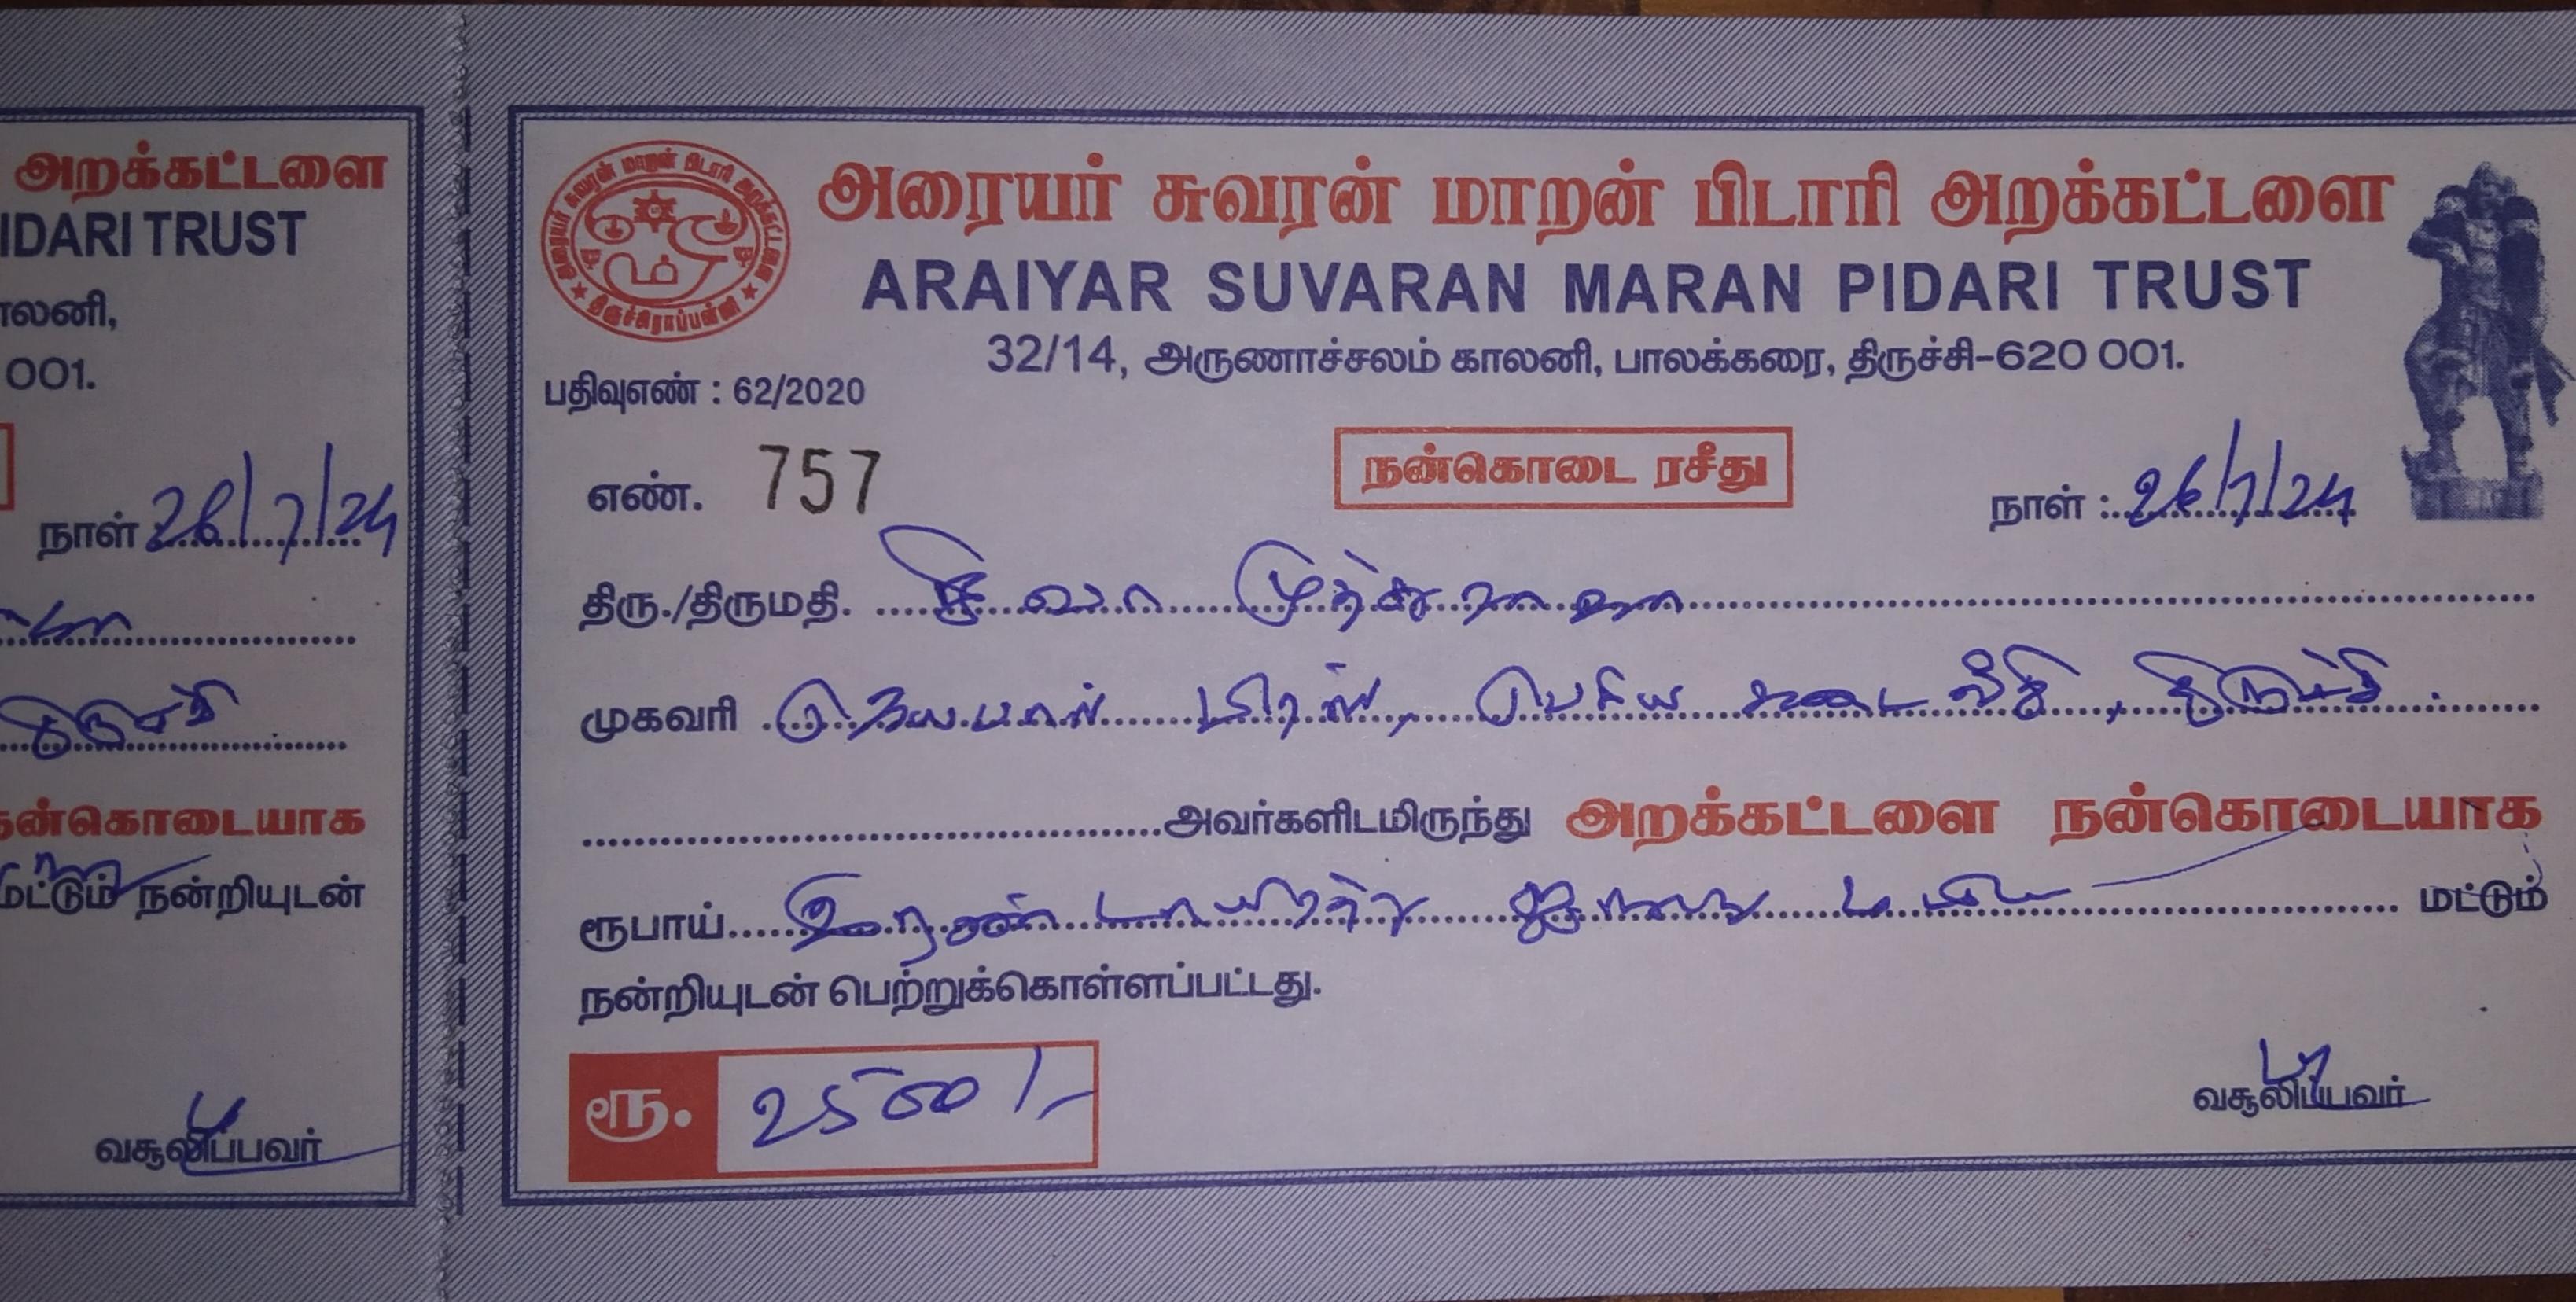 அறக்கட்டளை
IDARI TRUST
ாலனி,
001.
நாள் 26/7/24
திருச்சி
நன்கொடையாக
மட்டும் நன்றியுடன்
வசூலிப்பவர்
அரையர் சுவரன் மாறன் பிடாரி அறக்கட்டளை
திருச்சிராப்பள்ளி
அரையர் சுவரன் மாறன் பிடாரி அறக்கட்டளை
ARAIYAR SUVARAN MARAN PIDARI TRUST
32/14, அருணாச்சலம் காலனி, பாலக்கரை, திருச்சி-620 001.
பதிவுஎண் : 62/2020
எண். 757
நன்கொடை ரசீது
நாள் : 26/7/24
திரு./திருமதி. சிவா முத்து
முகவரி பெரிய கடை வீதி, திருச்சி
அவர்களிடமிருந்து அறக்கட்டளை நன்கொடையாக
ரூபாய் இரண்டாயிரத்து ஐநூறு மட்டும்
நன்றியுடன் பெற்றுக்கொள்ளப்பட்டது.
ரூ. 2500/-
வசூலிப்பவர்